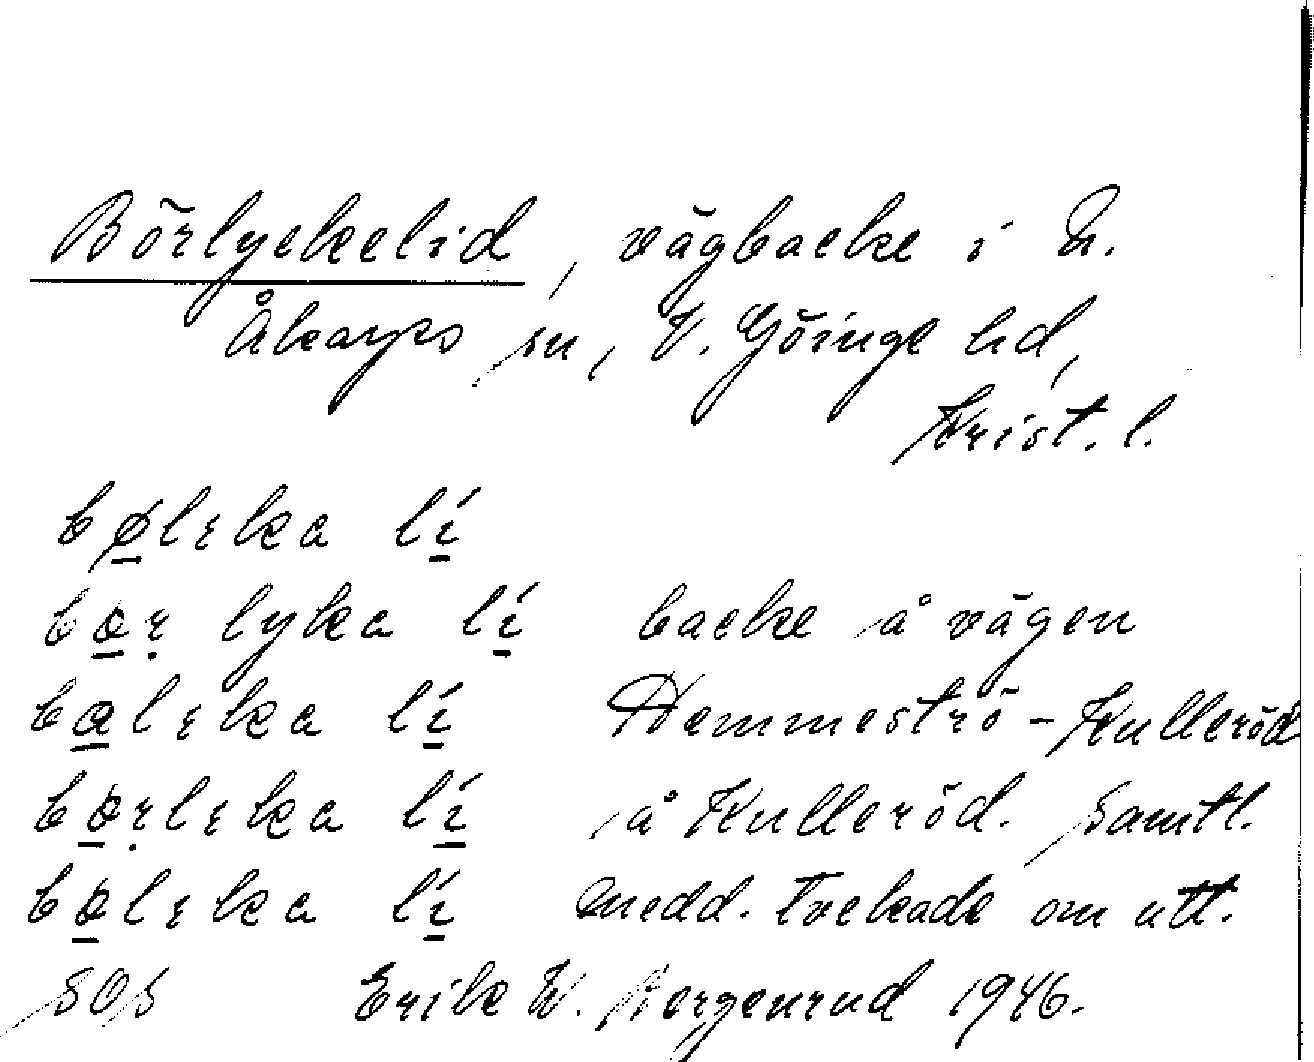 Börlyckelid, vägbacke i N.
Åkarps sn, V. Göinge hd,
Krist. l.
bølɩka lí
bœr lyka lí backe å vägen
balɩka lí Hemmeströ - Kulleröd
bœrlɩka lí å Kulleröd. Samtl.
bœlɩka lí medd. tvekade om utt.
SOS Erik W. 1946.